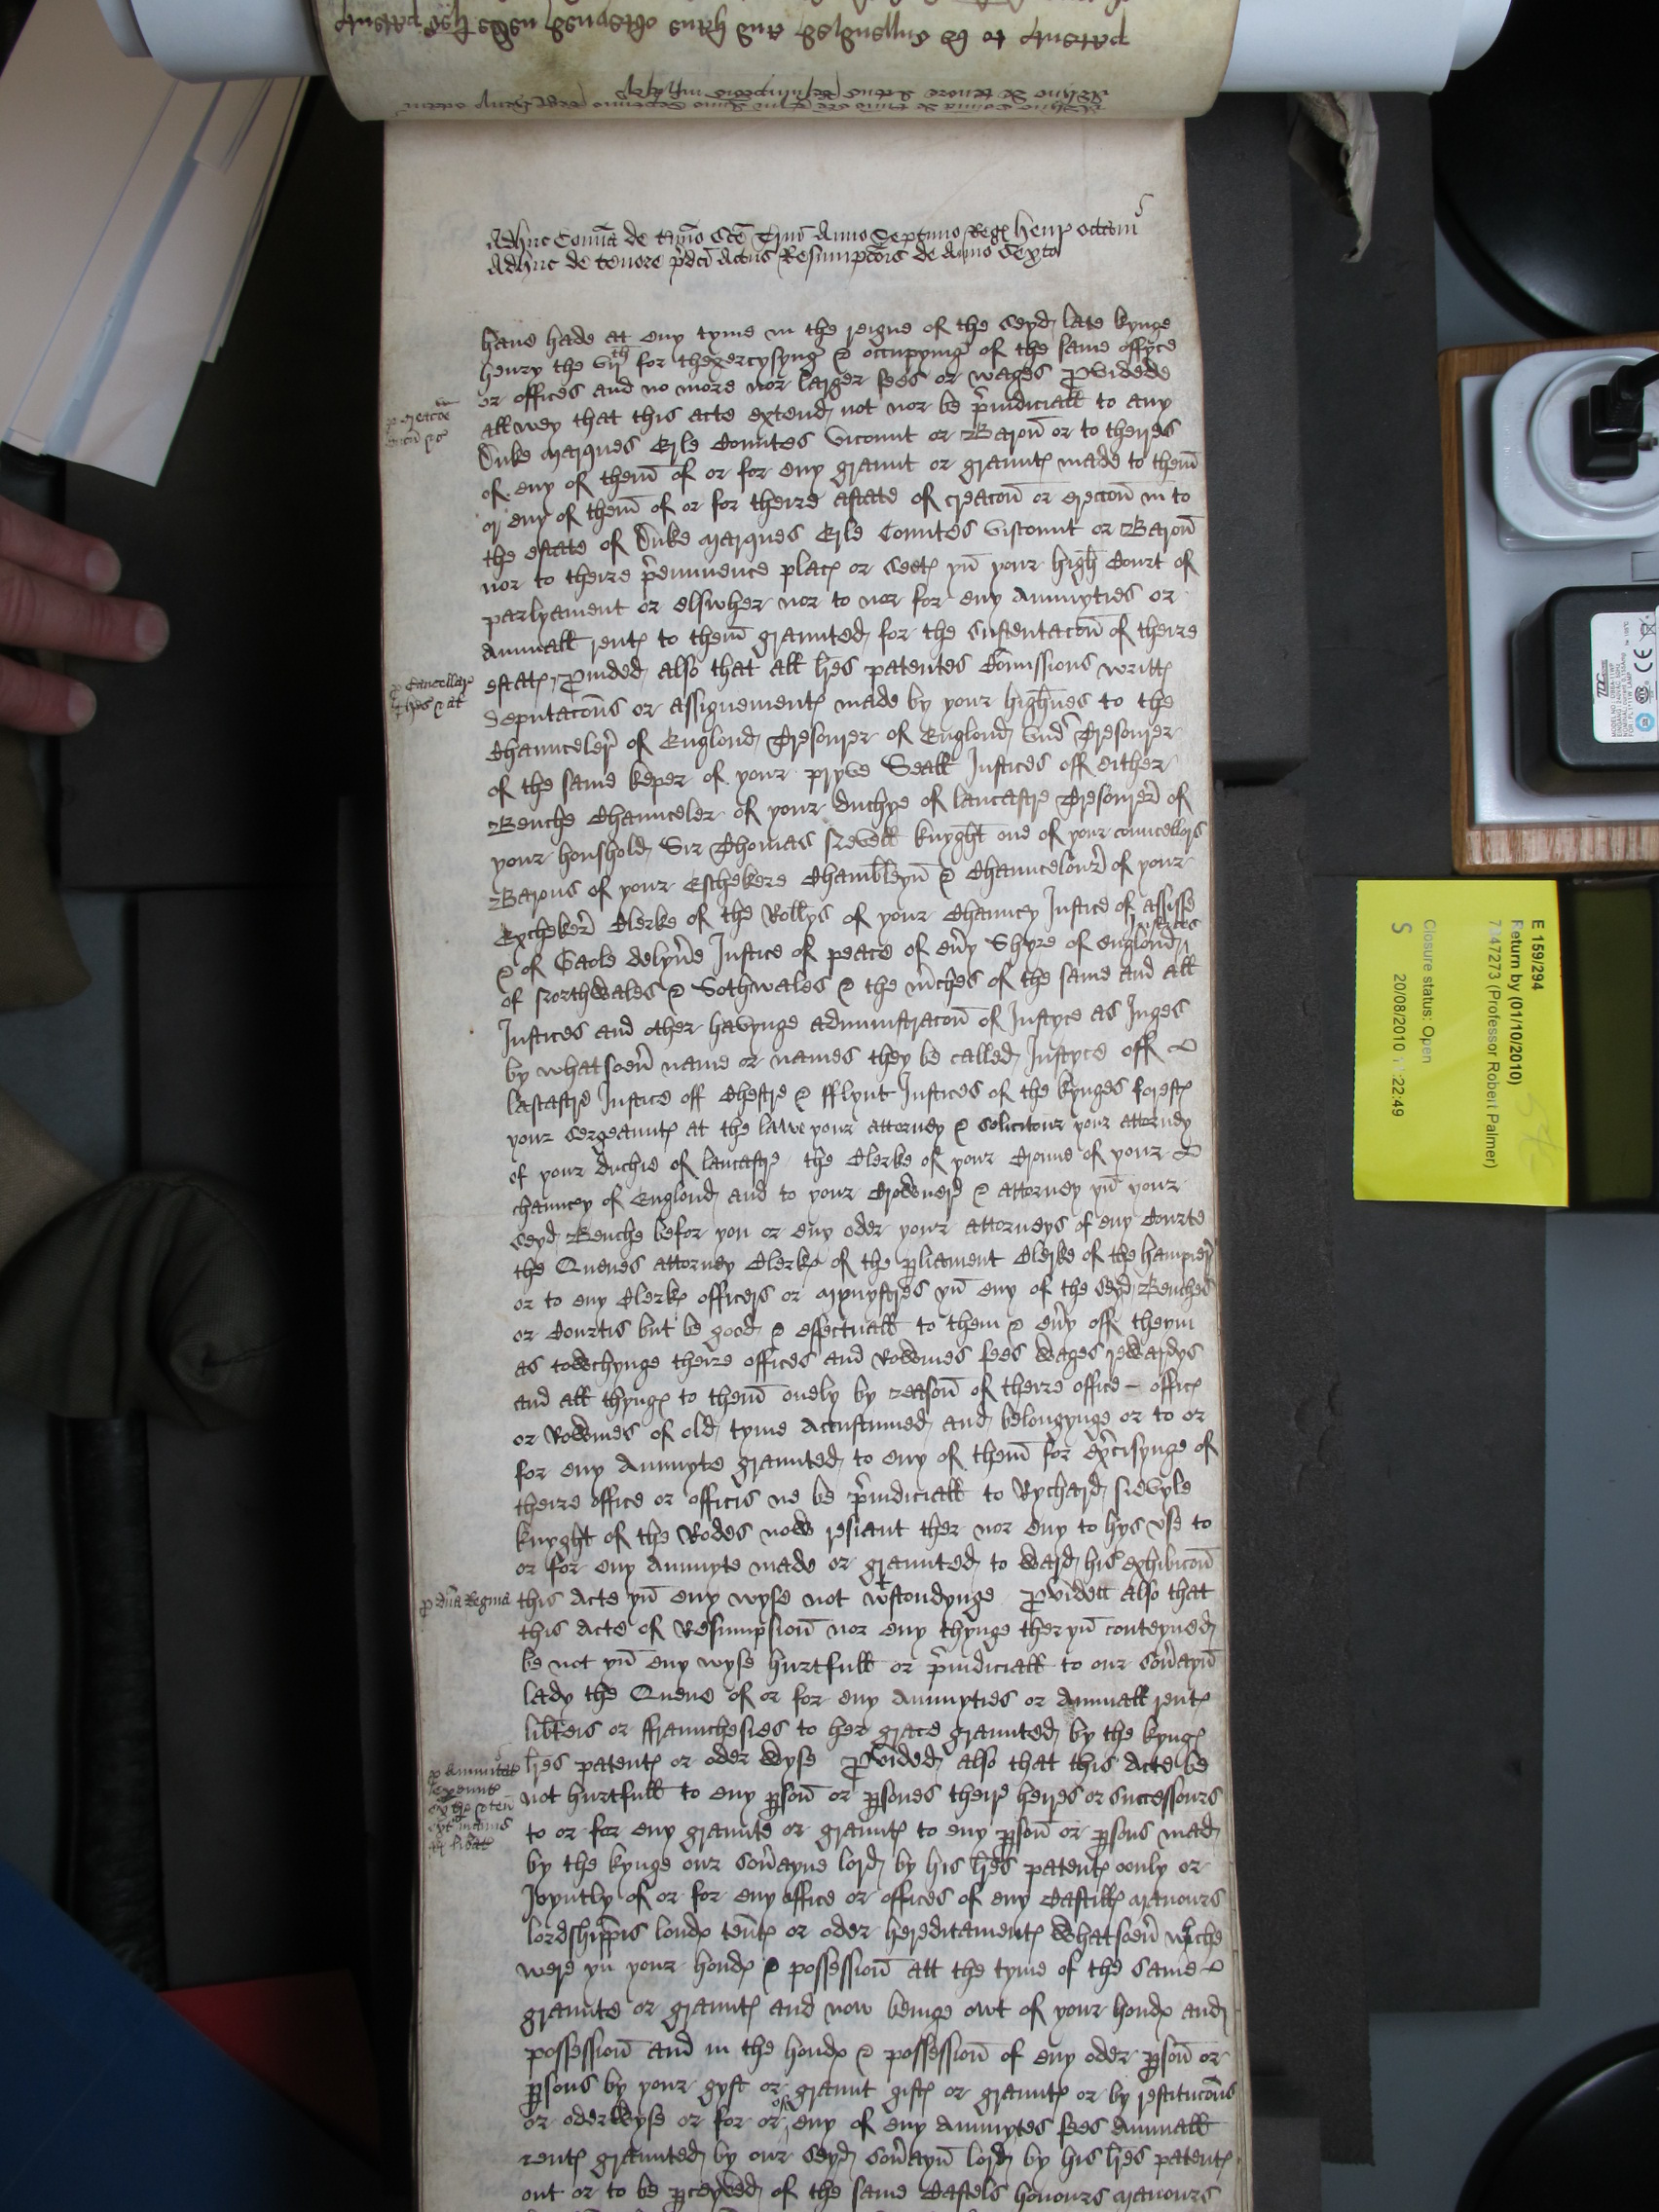 Adhuc Comia de tmio Sce Trinis Anno Septimo Reg Henr octavi
Adhuc de tenore pdci Actus Resumpcois de Anno Sexto
have hade at eny tyme in the reigne of the seyd late kynge
henry the vijth for thexercysyng & occupying of the same offyce
or offices and no more nor larger fees or wages Providede
allwey that this acte extend not nor be piudiciall to any
Duke Marques Erle Countes Vicount or Baron or to theires
of eny of them of or for eny graunt or graunt made to them
or eny of them of or for theire astate of creacon or ereccon in to
the estate of Duke Marques Erle Countes Viscount or Baron
nor to theire peminence place or seet yn your high Court of
parlyament or elswher nor to nor for eny Annuyties or
Annuall rent to them graunted for the sustentacon of theire
estat Pvided also that all lres patentes Comissions writt
deputacons or assignement made by your highnes to the
Chaunceler of Englond Tresourer of Englond vnd Tresourer
of the same keper of your pryve Seall Justices off either
Benche Chaunceler of your duchye of lancastre Tresourer of
your houshold Sir Thomas lovell knyght one of your councellors
Barons of your Eschekere Chambleyn & Chauncelour of your
Excheker Clerke of the Rollys of your Chauncy Justice of assisse
& of Gaole delyve Justice of peace of evy Shyre of englond Justices
of Northwales & Sothwales & the mches of the same and all
Justices and other havynge admynistracon of Justyce as Juges
by whatsoev name or names they be called Justyce off
lacastre Justice off Chestre & fflynt Justices of the kynges forest
your sergeaunt at the lawe your attorney & solicitour your attorney
of your duchie of lancastre the Clerke of your Croune of your
chauncy of Englond and to your Crowner & attorney yn your
seyd Benche befor you or eny oder your attorneys of eny Courte
the Quenes attorney Clerk of the pliament Clerke of the hamper
or to eny Clerk officers or mynystres yn eny of the seyd Benches
or Courtis but be good & effectuall to them & evy off theym
as towchynge theire offices and Rowmes fees wages rewardys
and all thyng to them onely by reason of theire office offic
or Rowmes of old tyme Accustumed and belongynge or to or
for eny Annuyte graunted to eny of them for excisynge of
theire office or officis ne be piudiciall to Rychard
knyght of the Rodes now resiant ther nor eny to hys vse to
or for eny annuyte made or graunted to ward his exhibicon
this Acte yn eny wyse not wtstondynge Providett also that
this Acte of Resumpsion nor eny thynge ther yn conteyned
be not yn eny wyse hurtfull or piudiciall to our sovayn
lady the Quene of or for eny Annuyties or Annuall rent
libteis or ffraunchesies to her grace graunted by the kyng
lres patent or oder wyse Provided also that this Acte be
not hurtfull to eny pson or psones their heires or successours
to or for eny graunte or graunt to eny pson or psons mad
by the kynge our sovayne lord by his lres patent oonly or
Joyntly of or for eny office or offices of eny Castill manours
lordshippis lond tent or oder hereditament whatsoev wiche
were yn your hond & possession att the tyme of the same
graunte or graunt and now beinge owt of your hond and
possession and in the hond & possession of eny oder pson or
psons by your gyft or graunt gift or graunt or by restitucons
or oderwyse or for or of eny of eny Annuytes fees annuall
rent graunted by our seyd sovayn lord by his lres patent
out or to be pceyved of the same Castels honours manours
p Cancellar
p dna Regina
E 159/294
Return by (01/10/2010)
7347273 (Professor Robert Palmer)
Closure status: Open
S 20/08/2010 11:22:49